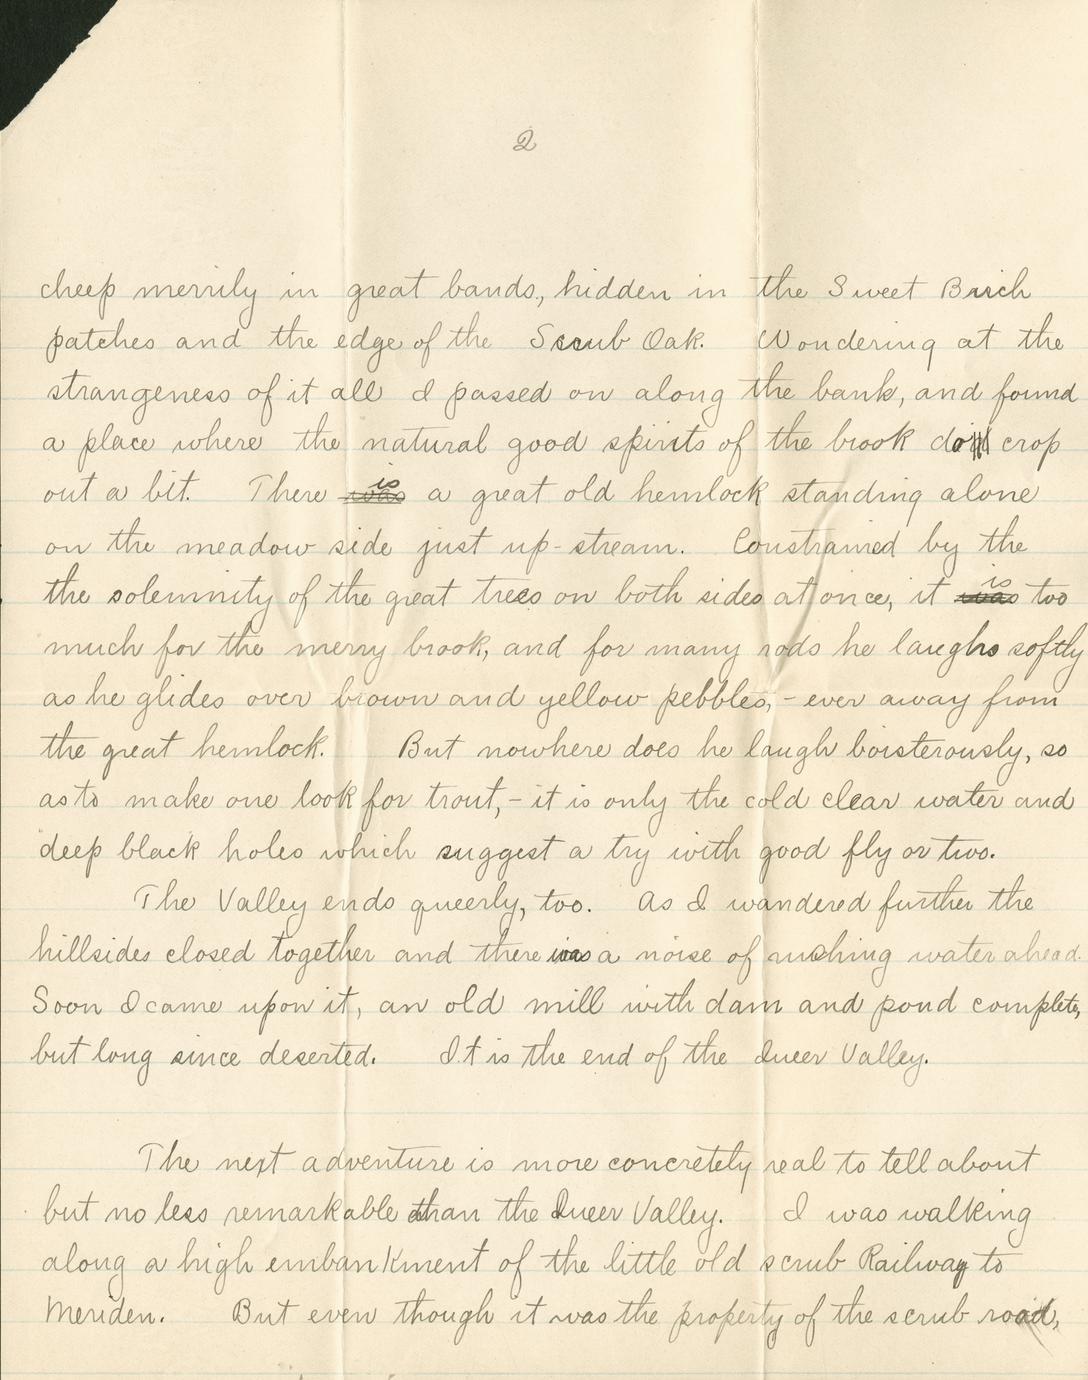 2
cheep merrily in great bands, hidden in the Sweet Birch
patches and the edge of the Scrub Oak. Wondering at the
strangeness of it all I passed on along the bank, and found
a place where the natural good spirits of the brook do crop
out a bit. There was is a great old hemlock standing alone
on the meadow side just up-stream. Constrained by the
the solemnity of the great trees on both sides at once, it was is too
much for the merry brook, and for many rods he laughs softly
as he glides over brown and yellow pebbles, - ever away from
the great hemlock. But nowhere does he laugh boisterously, so
as to make one look for trout, - it is only the cold clear water and
deep black holes which suggest a try with good fly or two.
The Valley ends queerly, too. As I wandered further the
hillsides closed together and there was a noise of rushing water ahead.
Soon I came upon it, an old mill with dam and pond complete,
but long since deserted. It is the end of the Queer Valley.
The next adventure is more concretely real to tell about
but no less remarkable than the Queer Valley. I was walking
along a high embankment of the little old scrub Railway to
Meriden. But even though it was the property of the scrub road,